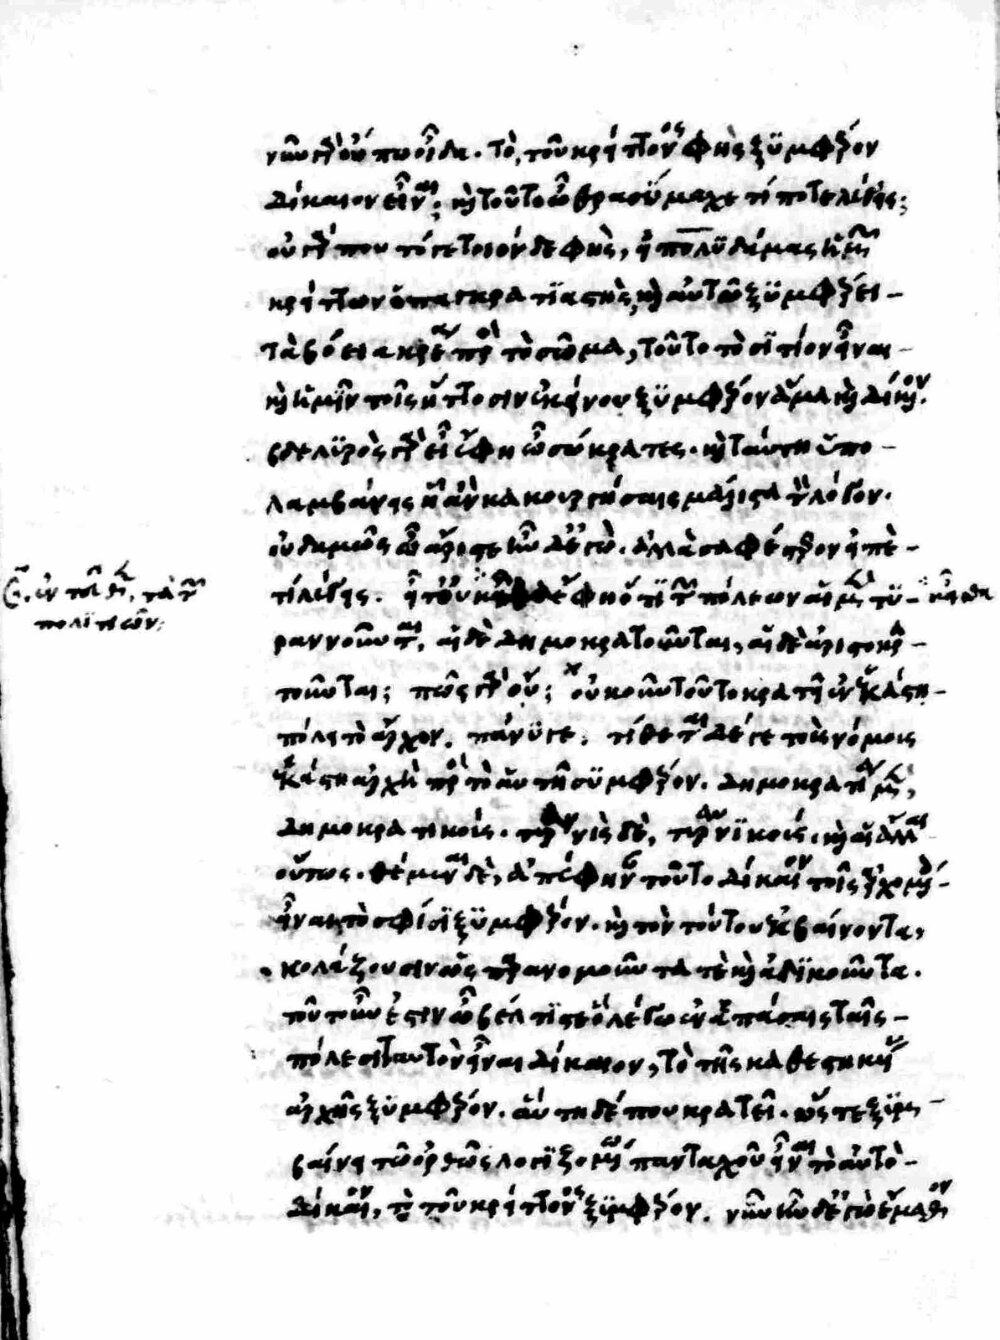 νῦν γὰρ οὔπω οἶδα. τὸ τοῦ κρείττονος φῂς ξυμφέρον
δίκαιον εἶναι; καὶ τοῦτο ὦ θρασύμαχε τί ποτε λέγεις;
οὐ γάρ που τό γε τοιόνδε φῄς, εἰ πολυδάμας ἡμῶν
κρείττων ὁ παγκρατιαστὴς, καὶ αὐτῷ ξυμφέρει
τὰ βόεια κρέα πρὸς τὸ σῶμα, τοῦτο τὸ σιτίον εἶναι
καὶ ἡμῖν τοῖς ἥττοσιν ἐκείνου ξυμφέρον ἅμα καὶ δίκαιον.
βδελυρὸς γὰρ εἶ ἔφη ὦ σώκρατες. καὶ ταύτῃ ὑπο
λαμβάνεις ᾗ ἂν κακουργήσαις μάλιστα τὸν λόγον.
οὐδαμῶς ὦ ἄριστε ἦν δ' ἐγώ. ἀλλὰ σαφέστερον εἰπὲ
τί λέγεις. εἶτ' οὐκ οἶσθα ἔφη ὅτι τῶν πόλεων αἱ μὲν τυ
ραννοῦνται, αἱ δὲ δημοκρατοῦνται, αἱ δὲ ἀριστοκρα
τοῦνται; πῶς γὰρ οὔ; οὐκοῦν τοῦτο κρατεῖ ἐν ἑκάστῃ
πόλει τὸ ἄρχον. πάνυ γε. τίθεται δέ γε τοὺς νόμους
ἑκάστη ἀρχὴ πρὸς τὸ αὑτῇ συμφέρον. δημοκρατία μὲν,
δημοκρατικούς. τυραννὶς δὲ, τυραννικούς. καὶ αἱ ἄλλαι
οὕτως. θέμεναι δὲ, ἀπέφηναν τοῦτο δίκαιον τοῖς ἀρχομένοις
εἶναι, τὸ σφίσι ξυμφέρον. καὶ τὸν τούτου ἐκβαίνοντα,
κολάζουσιν ὡς παρανομοῦντά τε καὶ ἀδικοῦντα.
τοῦτ' οὖν ἐστιν ὦ βέλτιστε ὃ λέγω ἐν ἁπάσαις ταῖς
πόλεσι ταυτὸν εἶναι δίκαιον, τὸ τῆς καθεστηκυίας
ἀρχῆς ξυμφέρον. αὕτη δέ που κρατεῖ. ὥστε ξυμ
βαίνει τῷ ὀρθῶς λογιζομένῳ πανταχοῦ εἶναι τὸ αὐτὸ
δίκαιον, τὸ τοῦ κρείττονος ξυμφέρον. νῦν ἦν δ' ἐγὼ ἔμαθον